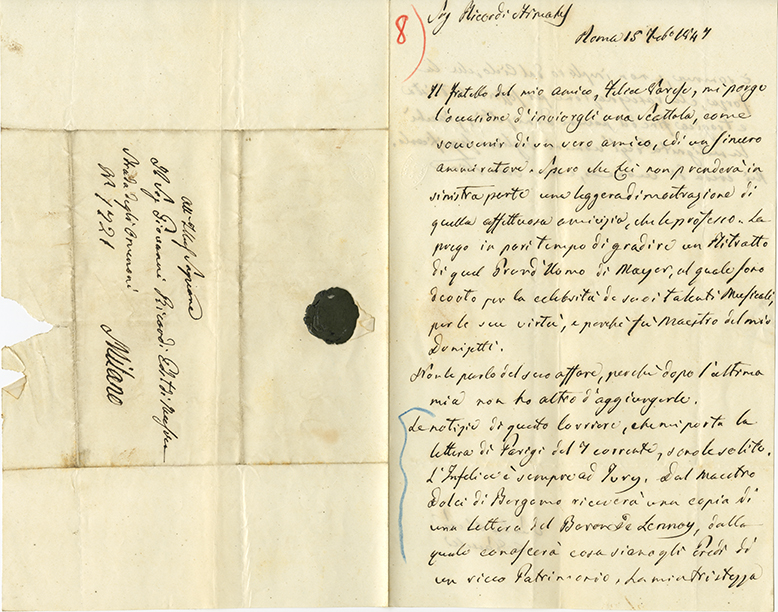 8
Sig Ricordi Stimatis
Roma 15 Febº 1847
Il fratello del mio amico, Felice Varese, mi porge
l'occasione d'inviargli una Scattola, come
souvenir di un vero amico, e di un sincero
ammiratore. Spero che Lei non prenderà in
sinistra parte una leggera dimostrazione di
quella affettuosa amicizia, che le professo. La
prego in pari tempo di gradire un Ritratto
di quel Grand'Uomo di Mayer, al quale sono
devoto per la celebrità de suoi talenti Musicali,
per le sue virtù, e perché fu Maestro del mio
Donizetti.
Non le parlo del suo affare, perché dopo l'ultima
mia non ho altro d'aggiungerle.
Le notizie di questo Corriere, che mi porta la
lettera di Parigi del 7 corrente, sono le solite.
L'Infelice è sempre ad Ivry. Dal Maestro
Dolci di Bergamo riceverà una copia di
una lettera del Baron De Lannoy, dalla
quale conoscerà cosa siano gli Eredi di
un ricco Patrimonio. La mia tristezza
All' Illus Signore
Il Sig Giovanni Ricordi Edit di Musica
Strada degli Omenoni
Nº 1721
Milano